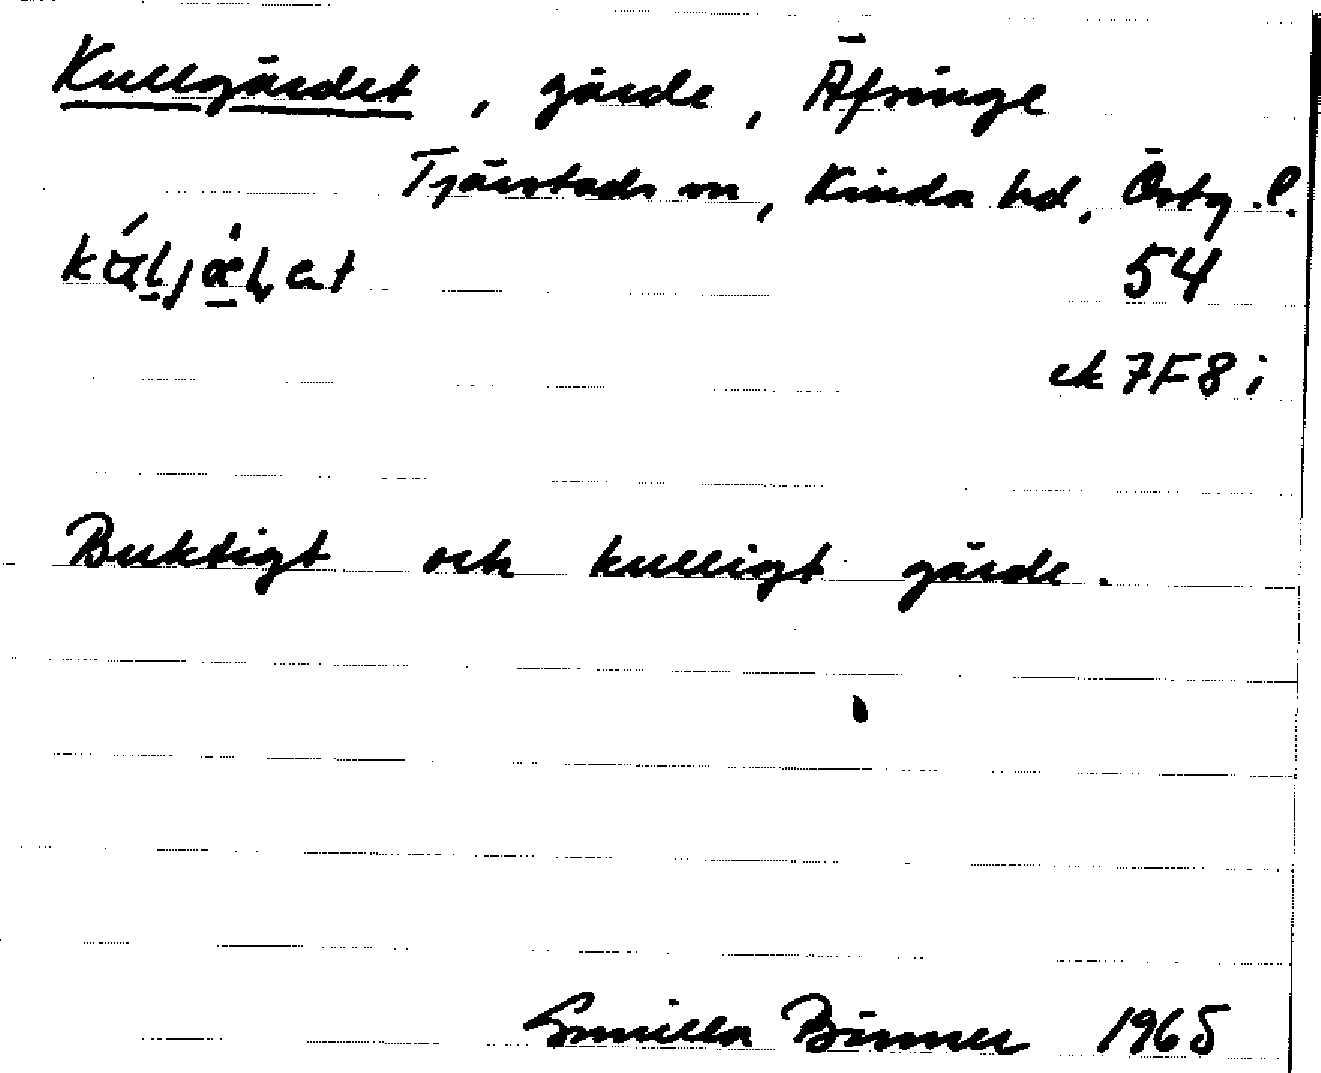 Kullgärdet, gärde, Äfringe
Tjärstads sn, Kinda hd, Östg.l.
54
ek 7F8i
Buktigt och kulligt gärde.
Gunilla Binner 1965